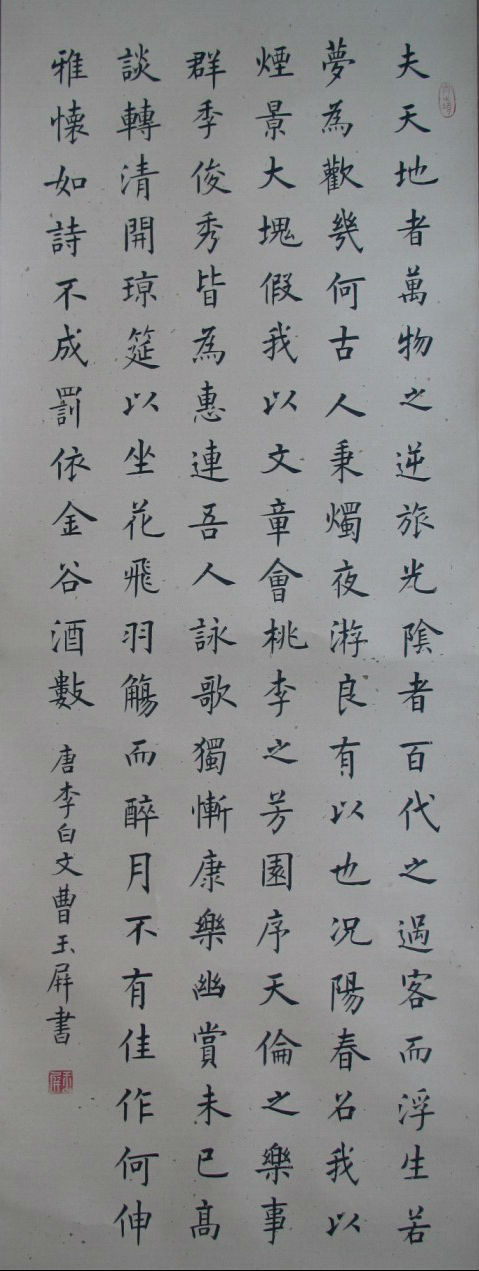 夫天地者萬物之逆旅光陰者百代之過客而浮生若
夢為歡幾何古人秉燭夜游良有以也況陽春召我以
煙景大塊假我以文章會桃李之芳園序天倫之樂事
群季俊秀皆為惠連吾人詠歌獨慚康樂幽賞未已高
談轉清開琼筵以坐花飛羽觴而醉月不有佳作何伸
雅懷如詩不成罰依金谷酒數
唐李白文曹玉屏書